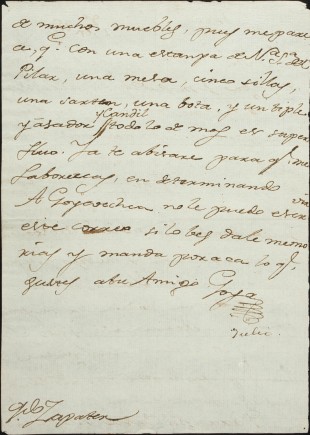 de muchos muebles, pues me pare
ce, q.e con una estanpa de N.a S.a del
Pilar, una mesa, cinco sillas,
una sarten, una bota, y un tiple
y asador y Candil todo lo de mas es super
fluo. Ya te abisare para q.e me
faborezcas, en determinando
A Goycoechea no le puedo escrivir
este correo si lo bes dale memo
rias y manda por aca lo q.e
gustes a tu Amigo Goya
Julio.
Zapater